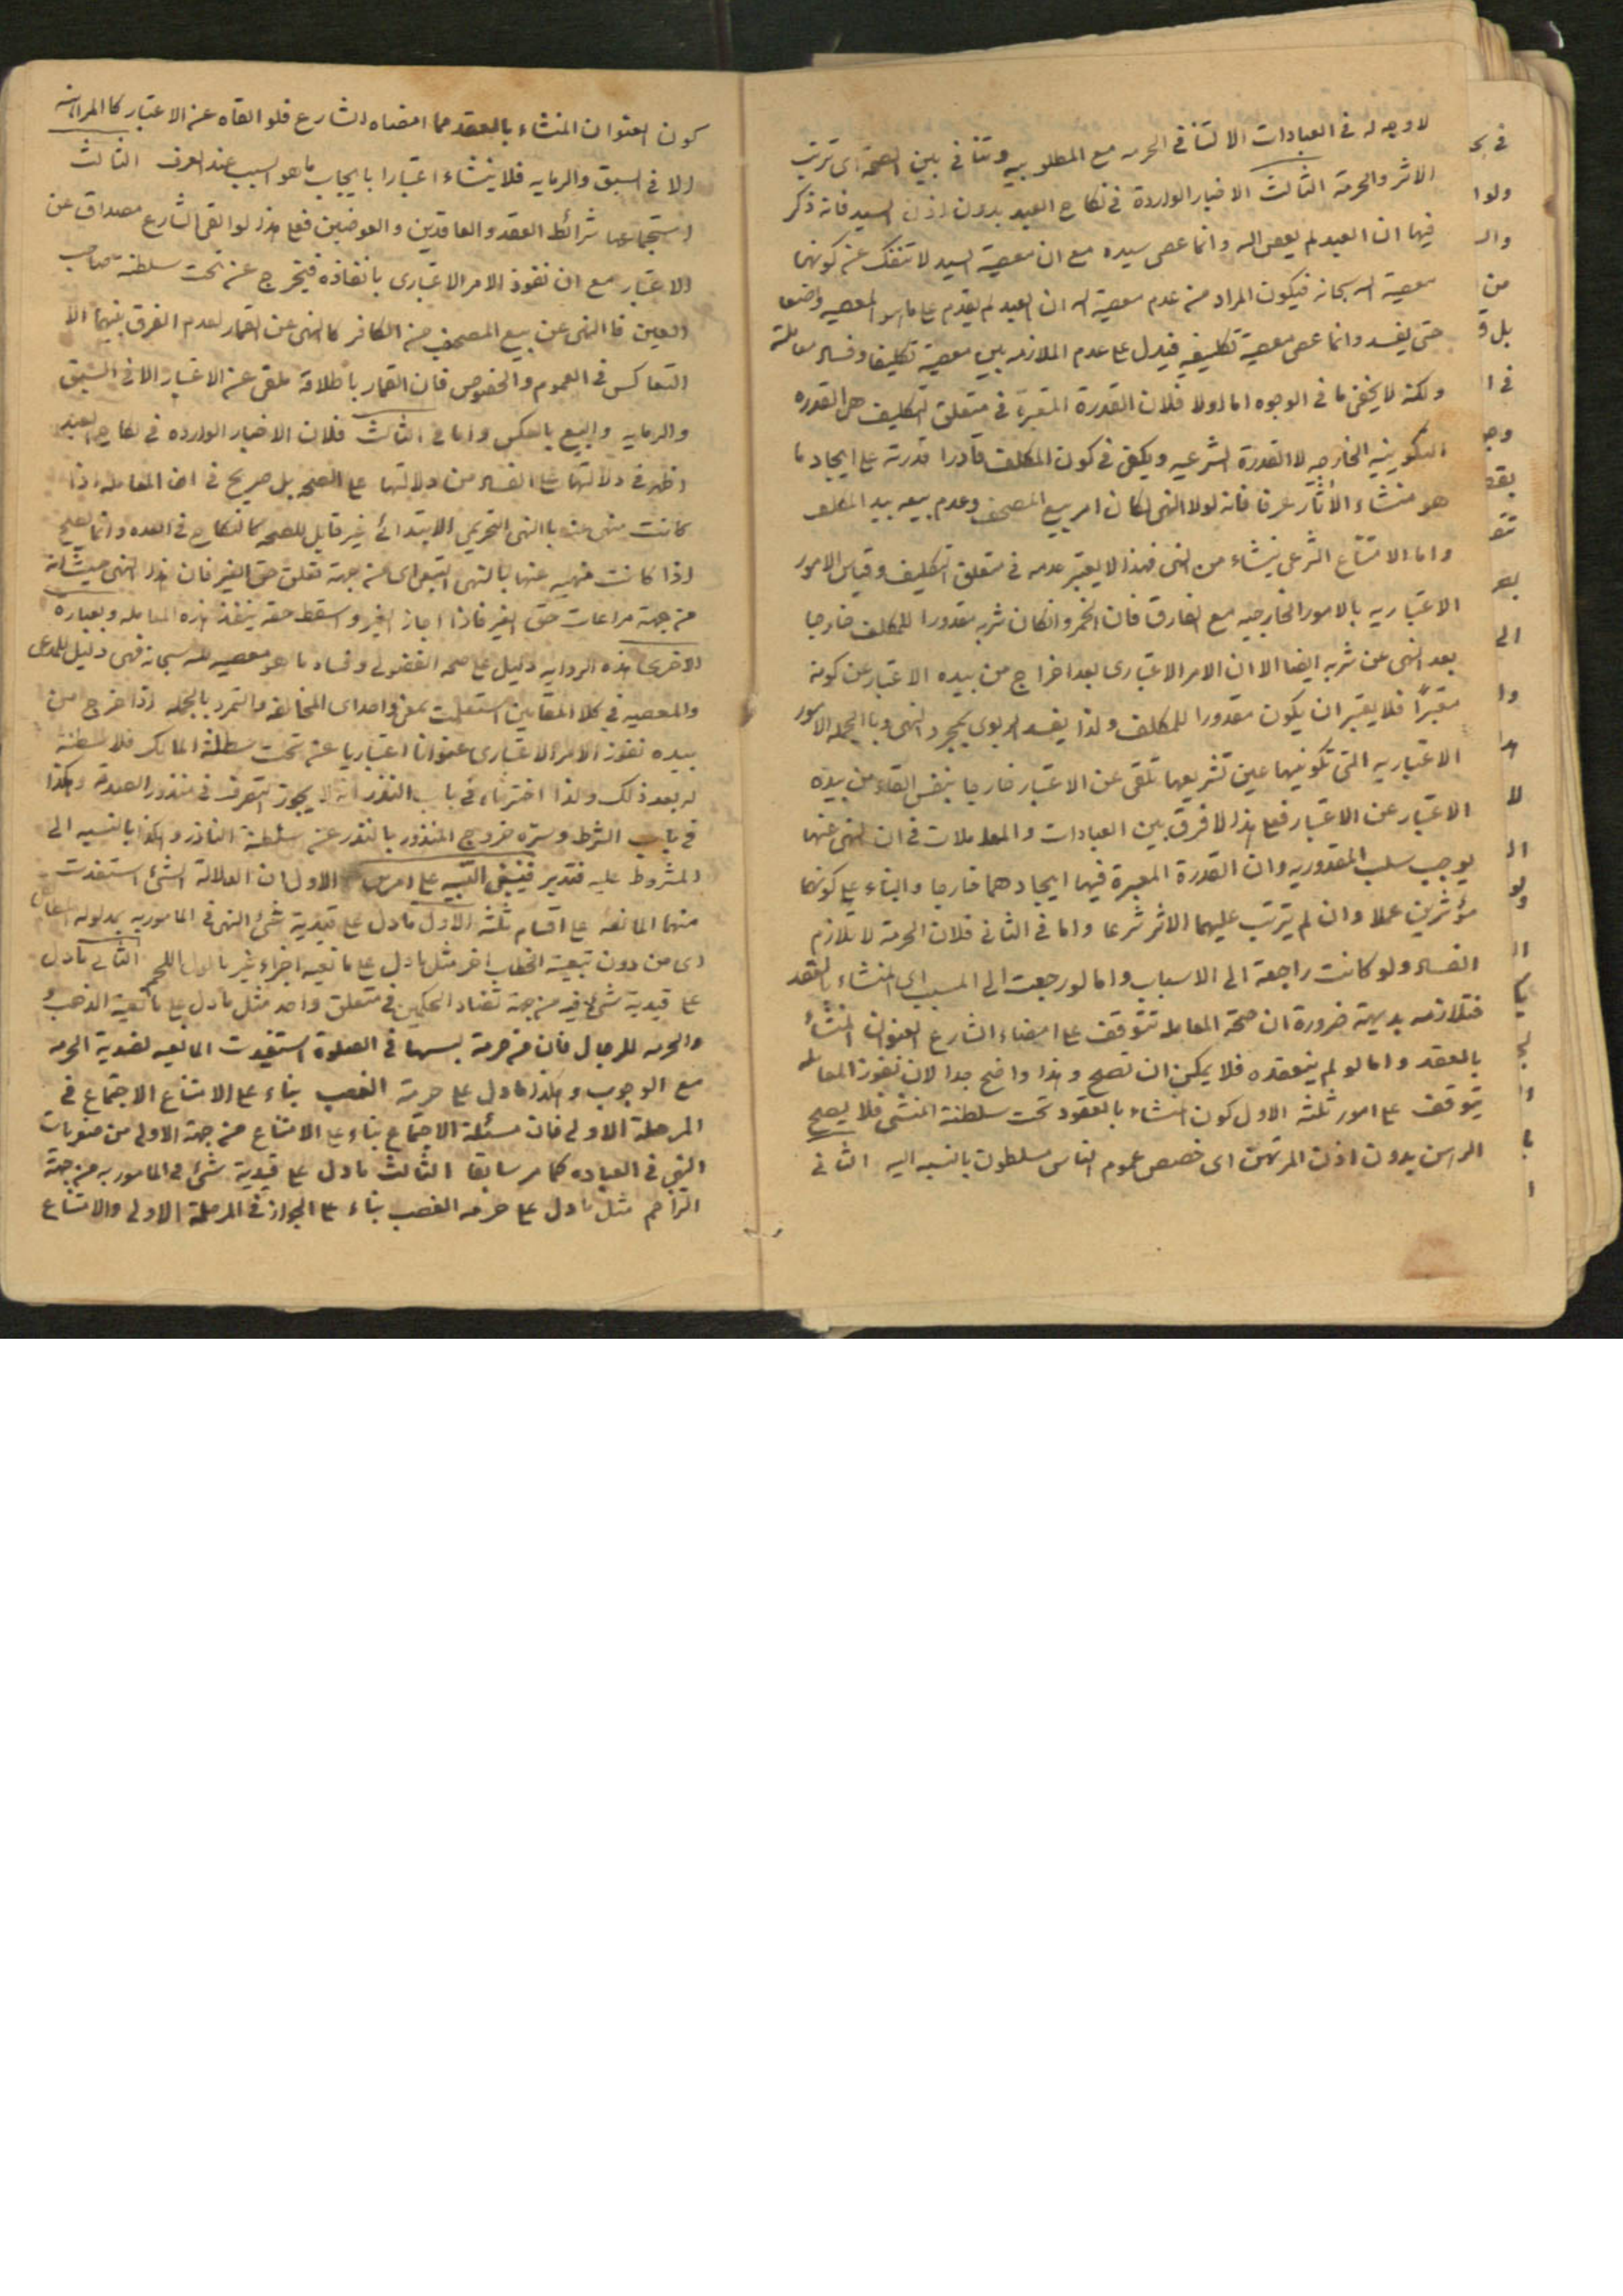 لا وجه له فى العبادات الا لتنافى الحرمه مع المطلوبيه وتنافى بين الصحة اى ترتب
الاثر والحرمة الثالث الاخبار الواردة فى نكاح العبد بدون اذن السيد فانه ذكر
فيها ان العبد لم يعص الله وانما عصى سيده مع ان معصية السيد لا تنفك عن كونها
معصية الله سبحانه فيكون المراد من عدم معصية الله ان العبد لم يقدم على ما هو المعصيه وضعا
حتى يفسد وانما عصى معصية تكليفيه فيدل على عدم الملازمه بين معصية تكليفا وفساد معاملة
ولكنه لا يخفى ما فى الوجوه اما اولا فلان القدرة المعتبرة فى متعلق التكليف هى القدره
التكوينيه الخارجيه لا القدرة الشرعيه ويكفى فى كون المكلف قادرا قدرته على ايجاد ما
هو منشاء الأثار عرفا فانه لولا النهى لكان امر بيع المصحف وعدم بيعه بيد المكلف
واما الامتناع الشرعى ينشاء من النهى فهذا لا يعتبر عدمه فى متعلق التكليف وقياس الامور
الاعتباريه بالامور الخارجيه مع الفارق فان الخمر وانكان شربه مقدورا للمكلف خارجا
بعد النهى عن شربه ايضا الا ان الامر الاعتبارى بعد اخراج من بيده الاعتبار عن كونه
معتبرًا فلا يعتبر ان يكون مقدورا للمكلف ولذا يفسد الربوى بمجرد النهى وبا الجمله الامور
الاعتباريه التى تكوينها عين تشريعها تلقى عن الاعتبار خارجا بنفس القاء من بيده
الاعتبار عن الاعتبار فعلى هذا لا فرق بين العبادات والمعاملات فى ان النهى عنها
يوجب سلب المقدوريه وان القدرة المعبرة فيهما ايجادهما خارجا والبناء على كونهما
مؤثرين عملا وان لم يترتب عليهما الاثر شرعا واما فى الثانى فلان الحرمة لا يلازم
الفساد ولو كانت راجعة الى الاسباب واما لو رجعت الى المسبب اى المنشاء بالعقد
فتلازمه بديهية ضرورة ان صحة المعامله تتوقف على امضاء الشارع العنوان المنشأ
بالعقد واما لو لم ينعقده فلا يمكن ان تصح وهذا واضح جدا لان نفوذ المعامله
يتوقف على امور ثلثة الاول كون المنشاء بالعقود تحت سلطنة المنشى فلا يصح
الرهن بدون اذن المرتهن اى خصص عموم الناس مسلطون بالنسبه اليه الثانى
كون العنوان المنشاء بالعقد مما امضاه الشارع فلو القاه عن الاعتبار كالمراهنه
الا فى السبق والرمايه فلا ينشاء اعتبارا بايجاب ما هو السبب عند العرف الثالث
استجماعها شرائط العقد والعاقدين والعوضين فعلى هذا لو القى الشارع مصداق عن
الاعتبار مع ان نفوذ الامر الاعتبارى بانفاذه فيخرج عن تحت سلطنة صاحب
العين فا النهى عن بيع المصحف من الكافر كالنهى عن القمار لعدم الفرق بينهما الا
التعاكس فى العموم والخصوص فان القمار باطلاقه ملقى عن الاعتبار الا فى السبق
والرمايه والبيع بالعكس واما فى الثالث فلان الاخبار الوارده فى نكاح العبد
اظهر فى دلالتها على الفساد من دلالتها على الصحه بل صريح فى ان المعامله اذا
كانت منهى عنها با النهى التحريمى الابتدائى غير قابل للصحه كالنكاح فى العده وانما يصح
اذا كانت منهيه عنها بالنهى التبعى اى من جهة تعلق حق الغير فان هذا النهى حيث انه
من جهة مراعات حق الغير فاذا اجاز الغير واسقط حقه ينفذ هذه المعامله وبعباره
الاخرى هذه الروايه دليل على صحه الفضولى وفساد ما هو معصيه لله سبحانه فهى دليل للمدعى
والمعصيه فى كلا المقامين استعملت بمعنى واحد اى المخالفه والتمرد بالجمله اذا خرج من
بيده نفوذ الامر الاعتبارى عنوانا اعتباريا عن تحت سلطنة المالك فلا سلطنة
له بعد ذلك ولذا اخترناه فى باب النذر انه لا يجوز التصرف فى منذور الصدقة وهكذا
فى باب الشرط وسره خروج المنذور بالنذر عن سلطنة الناذر وهكذا بالنسبه الى
المشروط عليه فتدبر فينبغى التنبيه على امرين الاول ان الدلالة الشئ استفدت
منها المانعه على اقسام ثلثة الاول ما دل على قيدية شئ النهى فى المامور به بمدلوله المطابقى
اى من دون تبعية الخطاب اخر مثل ما دل على مانعيه اجزاء غير ماكول اللحم الثانى ما دل
على قيدية شئ فيه من جهة تضاد الحكمين فى متعلق واحد مثل ما دل على مانعية الذهب و
والحرمه للرجال فان من حرمة لبسها فى الصلوة استفيدت المانعيه لضدية الحرمه
مع الوجوب وهكذا ما دل على حرمة الغصب بناء على الامتناع الاجتماع فى
المرحلة الاولى فان مسئلة الاجتماع بناء على الامتناع من جهة الاولى من صغريات
النهى فى العباده كما مر سابقا الثالث ما دل على قيدية شئ فى المامور به من جهة
التزاحم مثل ما دل على حرمه الغصب بناء على الجواز فى المرحلة الاولى والامتناع